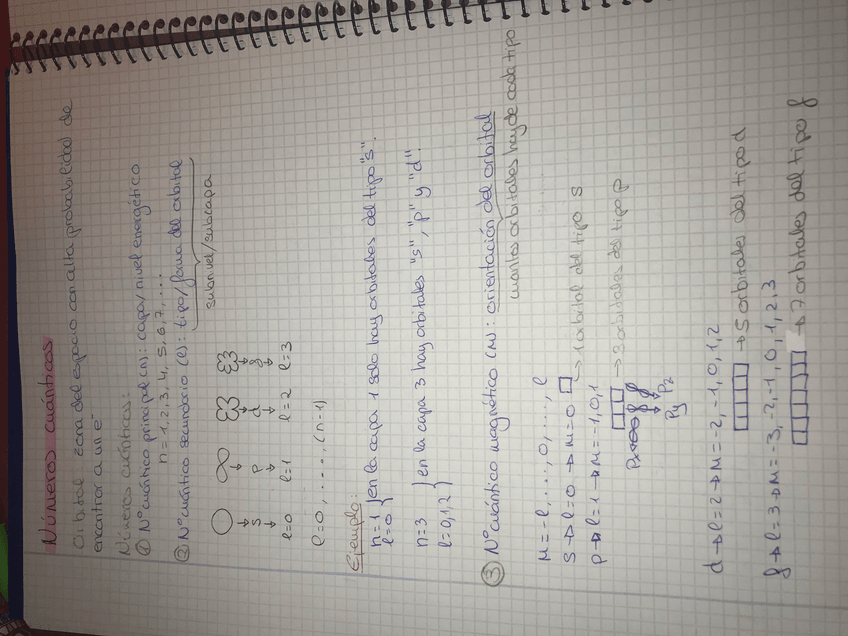 Números cuánticos
Orbital: zona del espacio con alta probabilidad de
encontrar a un e⁻
Números cuánticos:
① Nº cuántico principal (n): capa/nivel energético
n = 1, 2, 3, 4, 5, 6, 7, ...
② Nº cuántico secundario (l): tipo/forma del orbital
subnivel/subcapa
s p d f
l=0 l=1 l=2 l=3
l=0, ...., (n-1)
Ejemplo:
n=1 } en la capa 1 solo hay orbitales del tipo "s".
l=0
n=3 } en la capa 3 hay orbitales "s", "p" y "d".
l=0,1,2
③ Nº cuántico magnético (m): orientación del orbital
cuantos orbitales hay de cada tipo
m = -l, ..., 0, ..., l
s → l=0 → m=0 → 1 orbital del tipo s
p → l=1 → m=-1,0,1 → 3 orbitales del tipo p
Px Py Pz
d → l=2 → m=-2,-1,0,1,2
→ 5 orbitales del tipo d
f → l=3 → m=-3,-2,-1,0,1,2,3
→ 7 orbitales del tipo f